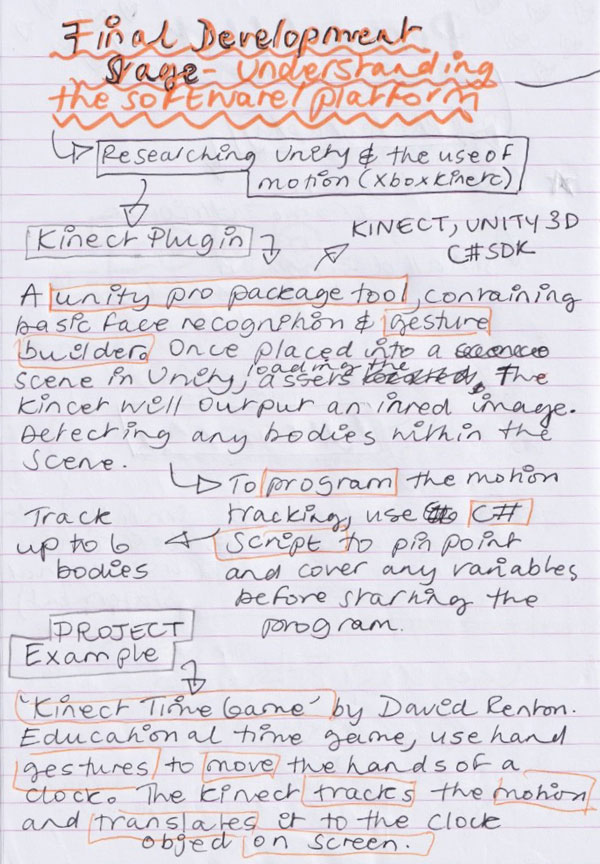 Final Development
Stage - Understanding
the software/platform
Researching Unity & the use of
motion (Xbox Kinect)
Kinect Plugin
KINECT, UNITY 3D
C# SDK
A unity pro package tool, containing
basic face recognition & gesture
builder. Once placed into a
scene in Unity, loading the assets, The
Kincet will output an inred image.
Detecting any bodies within the
scene.
To program the motion
tracking, use C#
Script to pin point
and cover any variables
before starting the
program.
Track
up to 6
bodies
PROJECT
Example
'Kinect Time Game' by David Renton.
Educational time game, use hand
gestures to move the hands of a
clock. The Kinect tracks the motion
and translates it to the clock
object on screen.